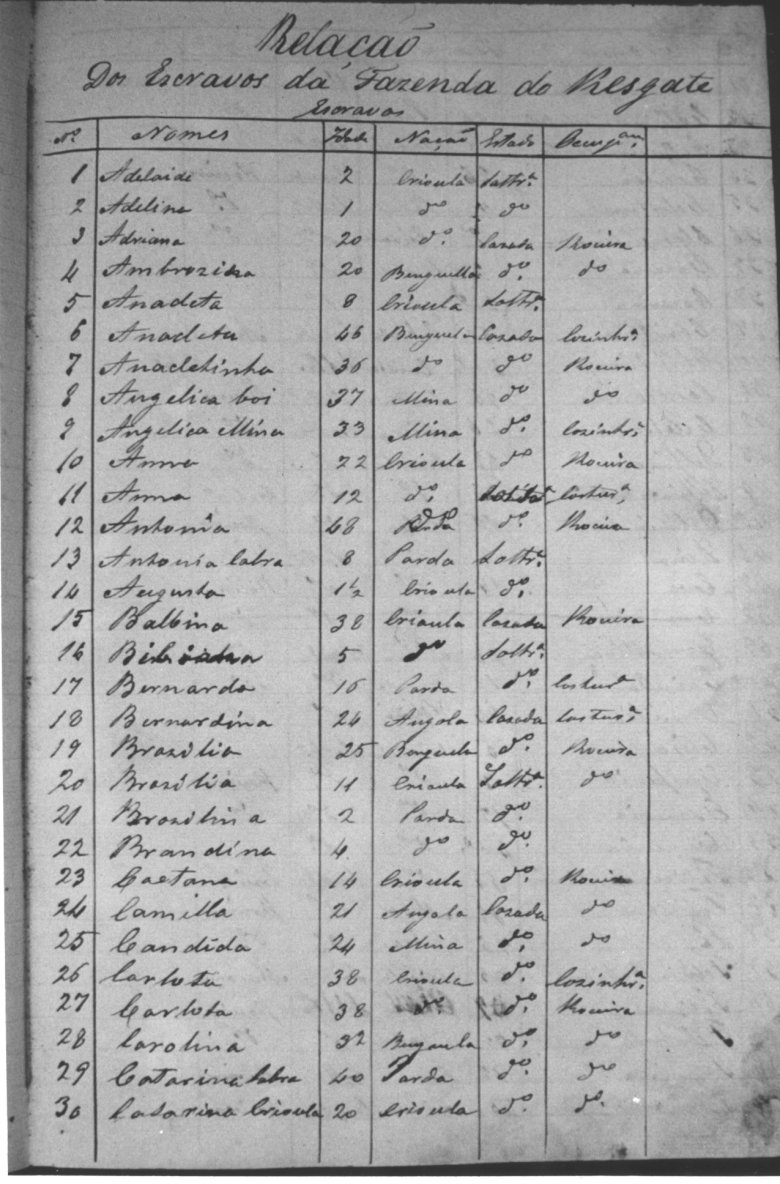 Relacaõ
Dos Escravos da Fazenda do Resgate
Escravas
Nº Nomes Idade Nação Estado Ocupçam.
1 Adelaide 2 Crioula Soltrª
2 Adelina 1 dº dº
3 Adriana 20 dº. Cazada Roceira
4 Ambrozina 20 Benguella dº. dº
5 Anacleta 8 Crioula Soltrª.
6 Anacleta 46 Benguela Cazada Cozinhrª
7 Anacletinha 36 dº dº Roceira
8 Angelica boi 37 Mina dº dº
9 Angelica Mina 33 Mina dº. Cozinhrª
10 Anna 22 Crioula dº Roceira
11 Anna 12 dº. Costurª
12 Antonia 48 dº. Roceira
13 Antonia Cabra 8 Parda Soltrª
14 Augusta 1½ Crioula dº.
15 Balbina 38 Crioula Cazada Roceira
16 5 dº Soltrª.
17 Bernarda 16 Parda dº. Costurª
18 Bernardina 24 Angola Cazada Costurª
19 Brazilia 25 Benguela dº. Roceira
20 Brazilia 11 Crioula Soltrª. dº
21 Brazilina 2 Parda dº.
22 Brandina 4 dº dº.
23 Caetana 14 Crioula dº. Roceira
24 Camilla 21 Angola Cazada dº
25 Candida 24 Mina dº. dº
26 Carlota 38 Crioula dº. Cozinhrª.
27 Carlota 38 dº dº. Roceira
28 Carolina 32 Benguela dº. dº
29 Catarina Cabra 40 Parda dº. dº
30 Catarina Crioula 20 Crioula dº. dº.